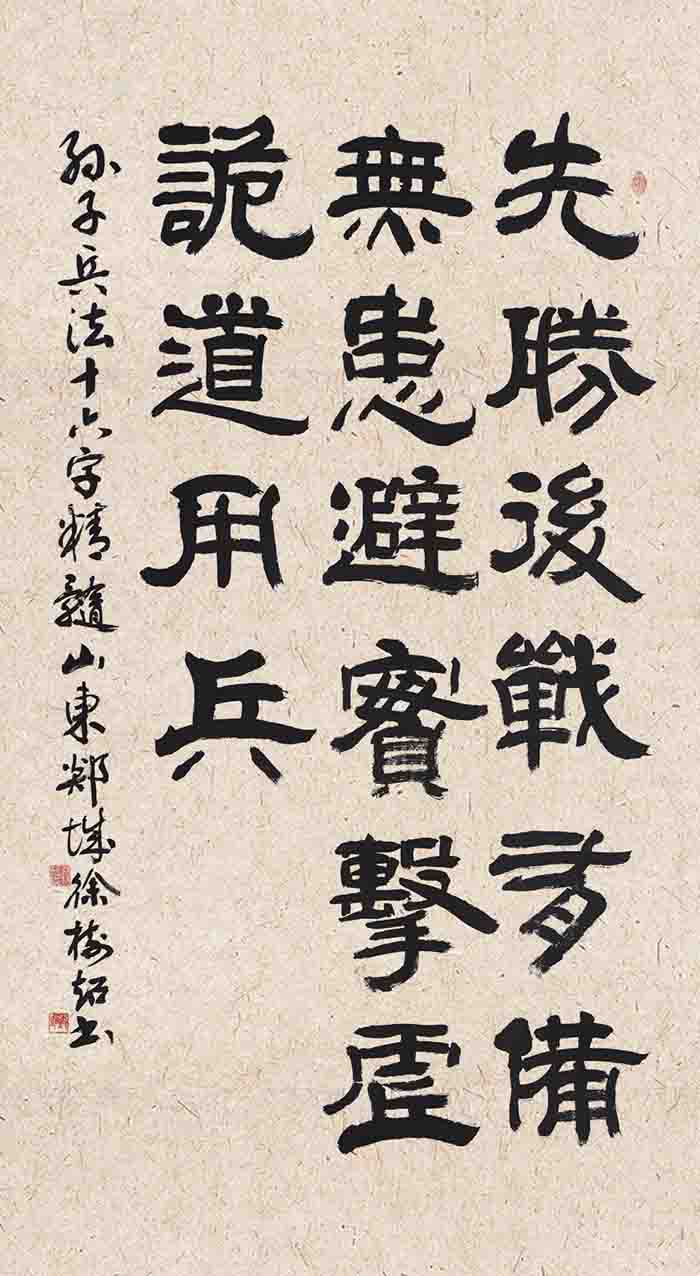 先勝後戰有備
無患避實擊虛
詭道用兵
孫子兵法十六字精髓山東郯城徐樹紹書